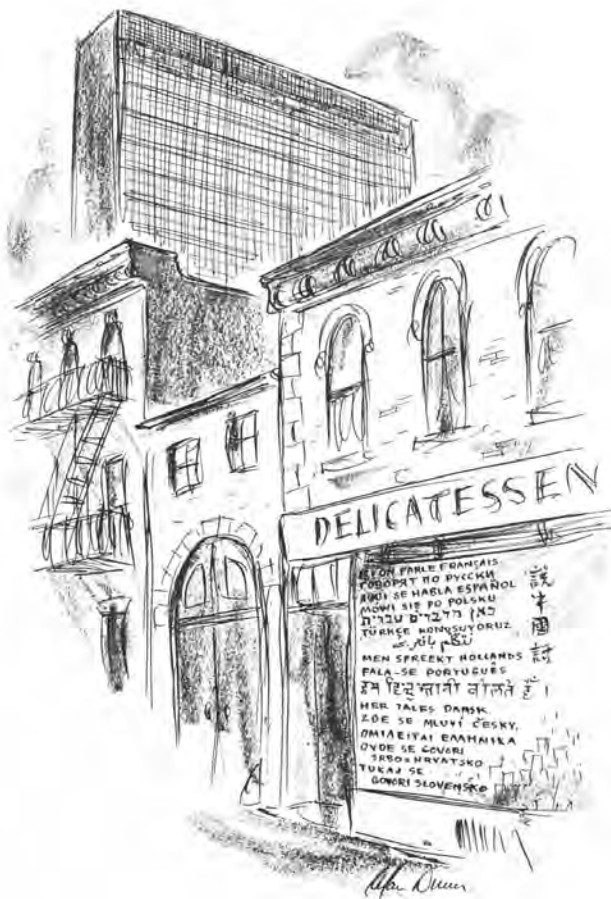 DELICATESSEN
ICI ON PARLE FRANÇAIS
ГОВОРЯТ ПО РУССКИ
AQUI SE HABLA ESPAÑOL
MÓWI SIĘ PO POLSKU
כאן מדברים עברית
TÜRKÇE KONUŞUYORUZ
نتكلم بالعربى
MEN SPREEKT HOLLANDS
FALA-SE PORTUGUÊS
हम हिन्दुस्तानी बोलते हैं।
HER TALES DANSK
ZDE SE MLUVÍ ČESKY.
ΟΜΙΛΕΙΤΑΙ ΕΛΛΗΝΙΚΑ
OVDE SE GOVORI
SRBO-HRVATSKO
TUKAJ SE
GOVORI SLOVENSKO
說中國話
Alan Dunn